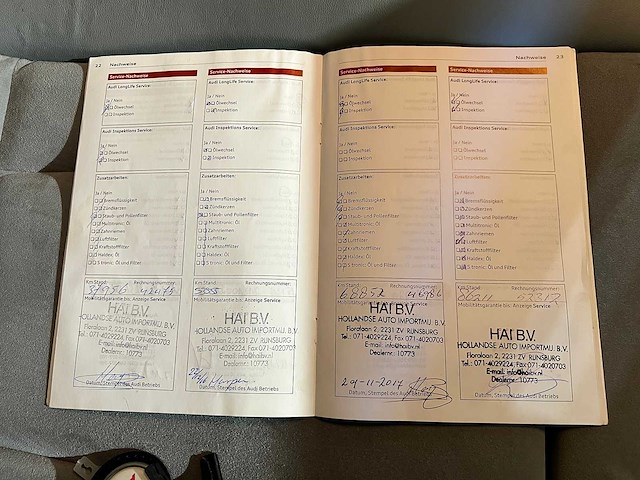 22 Nachweise
Service-Nachweise
Audi LongLife Service:
Ja / Nein
Ölwechsel
Inspektion
Audi Inspektions Service:
Ja / Nein
Ölwechsel
Inspektion
Zusatzarbeiten:
Ja / Nein
Bremsflüssigkeit
Zündkerzen
Staub- und Pollenfilter
Multitronic: Öl
Zahnriemen
Luftfilter
Kraftstofffilter
Haldex: Öl
S tronic: Öl und Filter
Km Stand: Rechnungsnummer:
Mobilitätsgarantie bis: Anzeige Service
HAI B.V.
HOLLANDSE AUTO IMPORTMIJ. B.V.
Floralaan 2, 2231 ZV RIJNSBURG
Tel.: 071-4029224, Fax 071-4020703
E-mail: info@haibv.nl
Dealernr.: 10773
Datum, Stempel des Audi Betriebs
Service-Nachweise
Audi LongLife Service:
Ja / Nein
Ölwechsel
Inspektion
Audi Inspektions Service:
Ja / Nein
Ölwechsel
Inspektion
Zusatzarbeiten:
Ja / Nein
Bremsflüssigkeit
Zündkerzen
Staub- und Pollenfilter
Multitronic: Öl
Zahnriemen
Luftfilter
Kraftstofffilter
Haldex: Öl
S tronic: Öl und Filter
Km Stand: Rechnungsnummer:
Mobilitätsgarantie bis: Anzeige Service
HAI B.V.
HOLLANDSE AUTO IMPORTMIJ. B.V.
Floralaan 2, 2231 ZV RIJNSBURG
Tel.: 071-4029224, Fax 071-4020703
E-mail: info@haibv.nl
Dealernr.: 10773
Datum, Stempel des Audi Betriebs
Nachweise 23
Service-Nachweise
Audi LongLife Service:
Ja / Nein
Ölwechsel
Inspektion
Audi Inspektions Service:
Ja / Nein
Ölwechsel
Inspektion
Zusatzarbeiten:
Ja / Nein
Bremsflüssigkeit
Zündkerzen
Staub- und Pollenfilter
Multitronic: Öl
Zahnriemen
Luftfilter
Kraftstofffilter
Haldex: Öl
S tronic: Öl und Filter
Km Stand: Rechnungsnummer:
68852
Mobilitätsgarantie bis: Anzeige Service
HAI B.V.
HOLLANDSE AUTO IMPORTMIJ. B.V.
Floralaan 2, 2231 ZV RIJNSBURG
Tel.: 071-4029224, Fax 071-4020703
E-mail: info@haibv.nl
Dealernr.: 10773
29-11-2017
Datum, Stempel des Audi Betriebs
Service-Nachweise
Audi LongLife Service:
Ja / Nein
Ölwechsel
Inspektion
Audi Inspektions Service:
Ja / Nein
Ölwechsel
Inspektion
Zusatzarbeiten:
Ja / Nein
Bremsflüssigkeit
Zündkerzen
Staub- und Pollenfilter
Multitronic: Öl
Zahnriemen
Luftfilter
Kraftstofffilter
Haldex: Öl
S tronic: Öl und Filter
Km Stand: Rechnungsnummer:
Mobilitätsgarantie bis: Anzeige Service
HAI B.V.
HOLLANDSE AUTO IMPORTMIJ. B.V.
Floralaan 2, 2231 ZV RIJNSBURG
Tel.: 071-4029224, Fax 071-4020703
E-mail: info@haibv.nl
Dealernr.: 10773
Datum, Stempel des Audi Betriebs